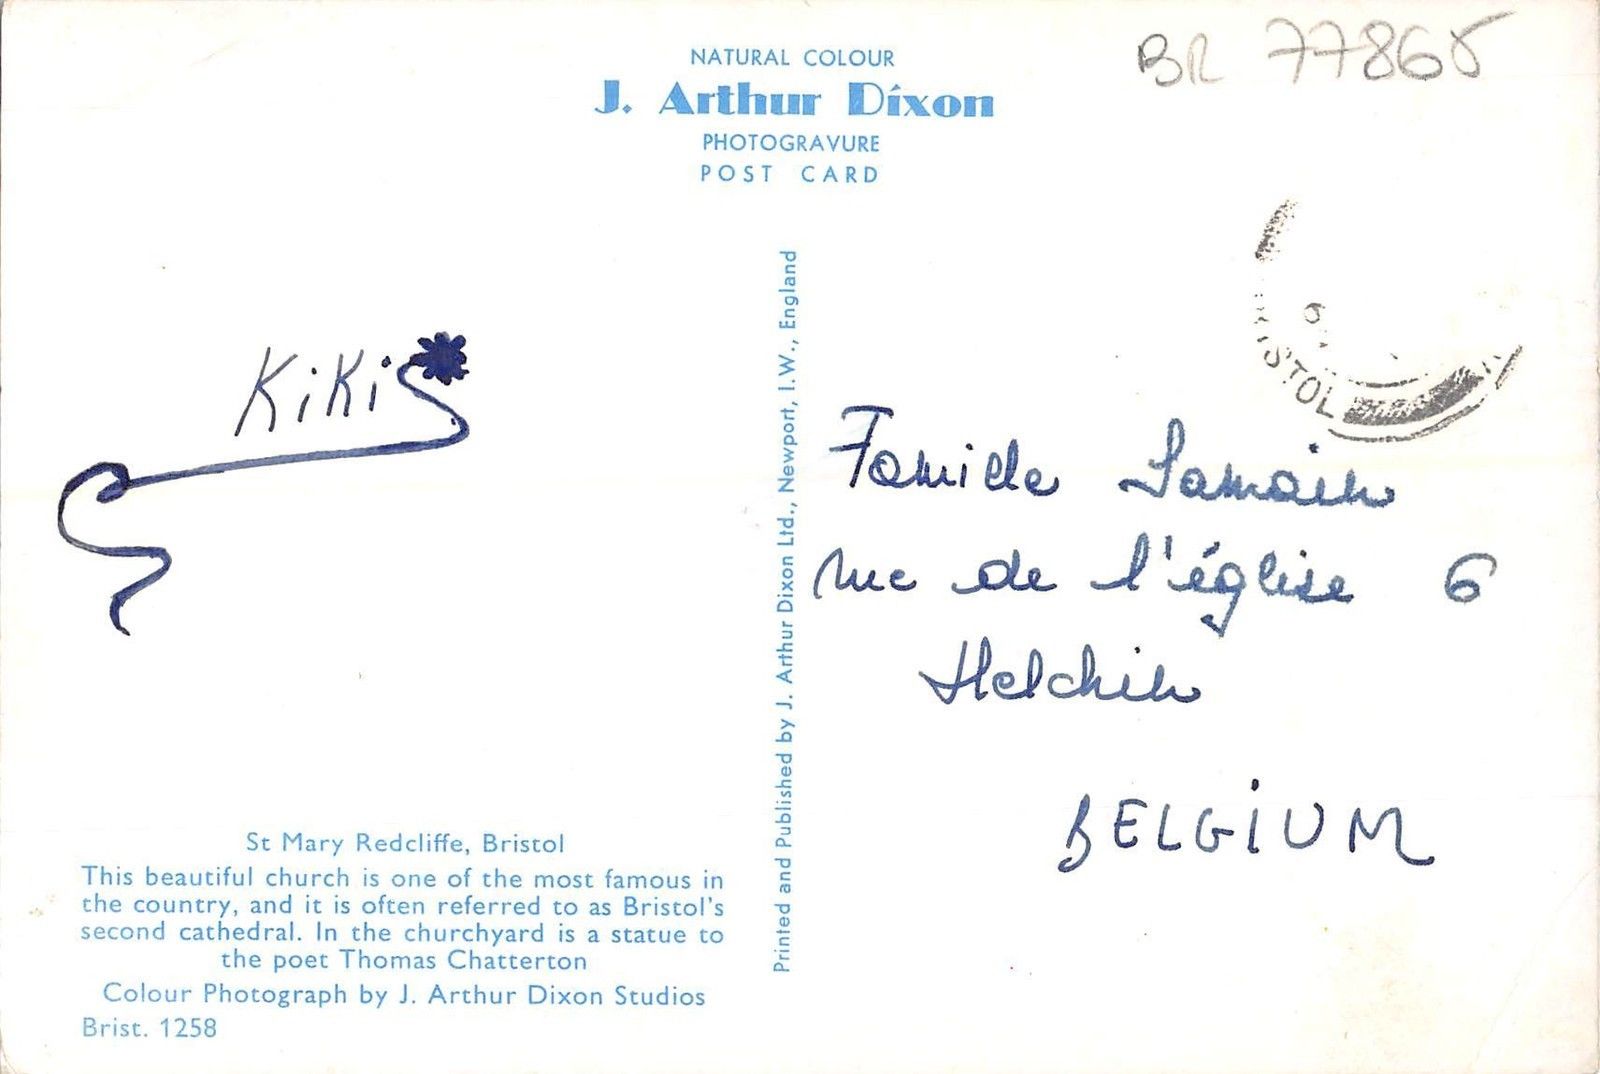 NATURAL COLOUR
J. Arthur Dixon
PHOTOGRAVURE
POST CARD
BR 77865
KiKi
Printed and Published by J. Arthur Dixon Ltd., Newport, I.W., England
Famille Lamain
rue de l'église 6
Helchin
BELGIUM
St Mary Redcliffe, Bristol
This beautiful church is one of the most famous in
the country, and it is often referred to as Bristol's
second cathedral. In the churchyard is a statue to
the poet Thomas Chatterton
Colour Photograph by J. Arthur Dixon Studios
Brist. 1258